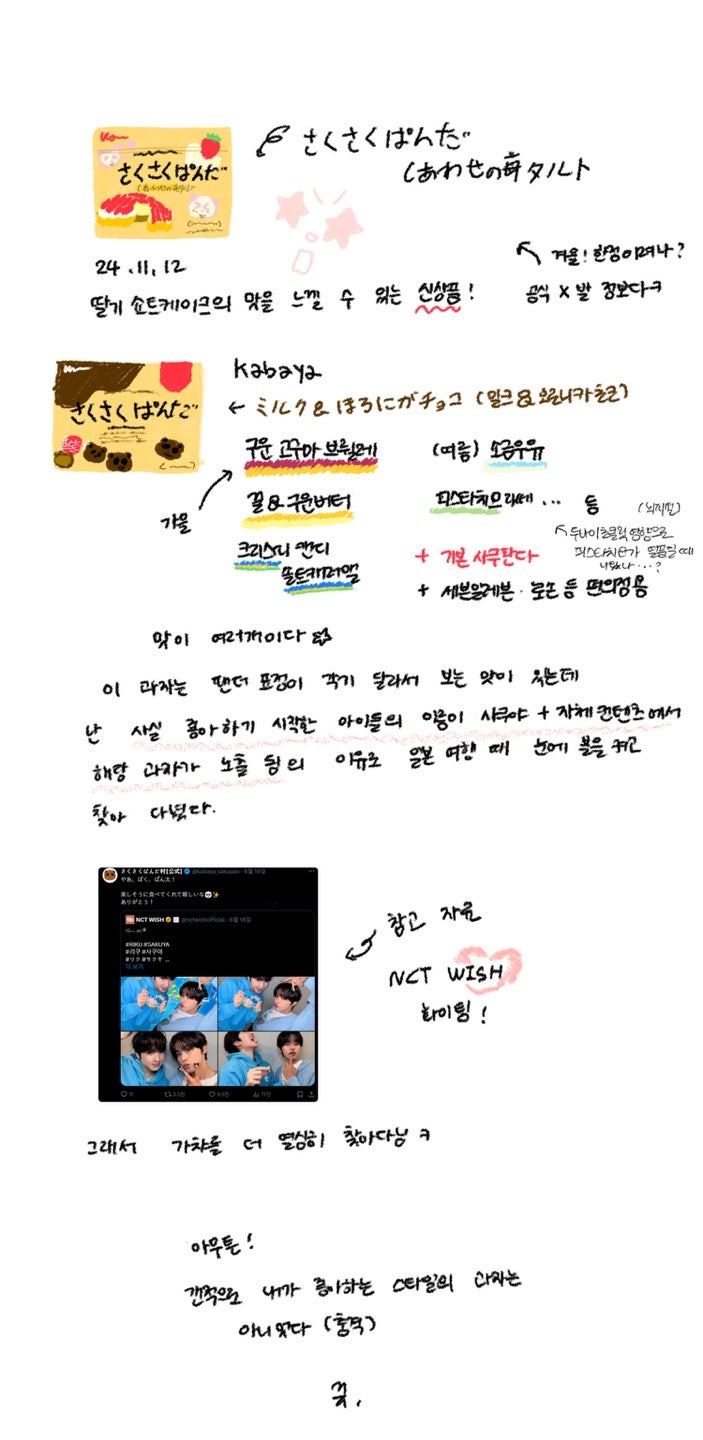 さくさくぱんだ
しあわせの苺タルト
さくさくぱんだ
しあわせの苺タルト
24.11.12
겨울! 한정이려나?
딸기 쇼트케이크의 맛을 느낄 수 있는 신상품!
공식 X발 정보다ㅋ
Kabaya
さくさくぱんだ
← ミルク&ほろにがチョコ (밀크&호로니가초코)
구운 고구마 브륄레
(여름) 소금우유
가을
꿀&구운버터
피스타치오라떼 ... 등
(뇌피셜)
두바이초콜릿 영향으로
피스타치오가 떠들썩할 때
나왔으나...?
크리스니 캔디
솔트캐러멜
+ 기본 사쿠판다
+ 세븐일레븐·로손 등 편의점용
맛이 여러개이다
이 과자는 팬더 표정이 각기 달라서 보는 맛이 있는데
난 사실 좋아하기 시작한 아이돌의 이름이 사쿠야 + 자체 컨텐츠에서
해당 과자가 노출 됨의 이유로 일본 여행 때 눈에 불을 켜고
찾아 다녔다.
さくさくぱんだ村【公式】 @kabaya_sakupan · 6월 19일
やあ、ぼく、ぱん太！
楽しそうに食べてくれて嬉しいな
ありがとう！
NCT WISH @nctwishofficial · 6월 18일
#RIKU #SAKUYA
#리쿠 #사쿠야
#リク #サクヤ ...
더 보기
참고 자료
NCT WISH
화이팅!
그래서 가챠를 더 열심히 찾아다님 ㅋ
아무튼!
갠적으로 내가 좋아하는 스타일의 과자는
아니었다 (충격)
끗.